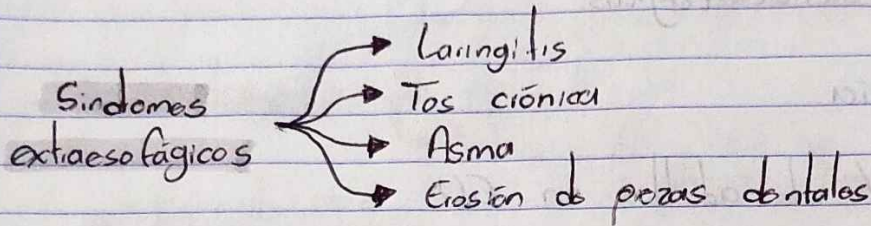 Sindromes
extraesofágicos
Laringitis
Tos crónica
Asma
Erosión de piezas dentales